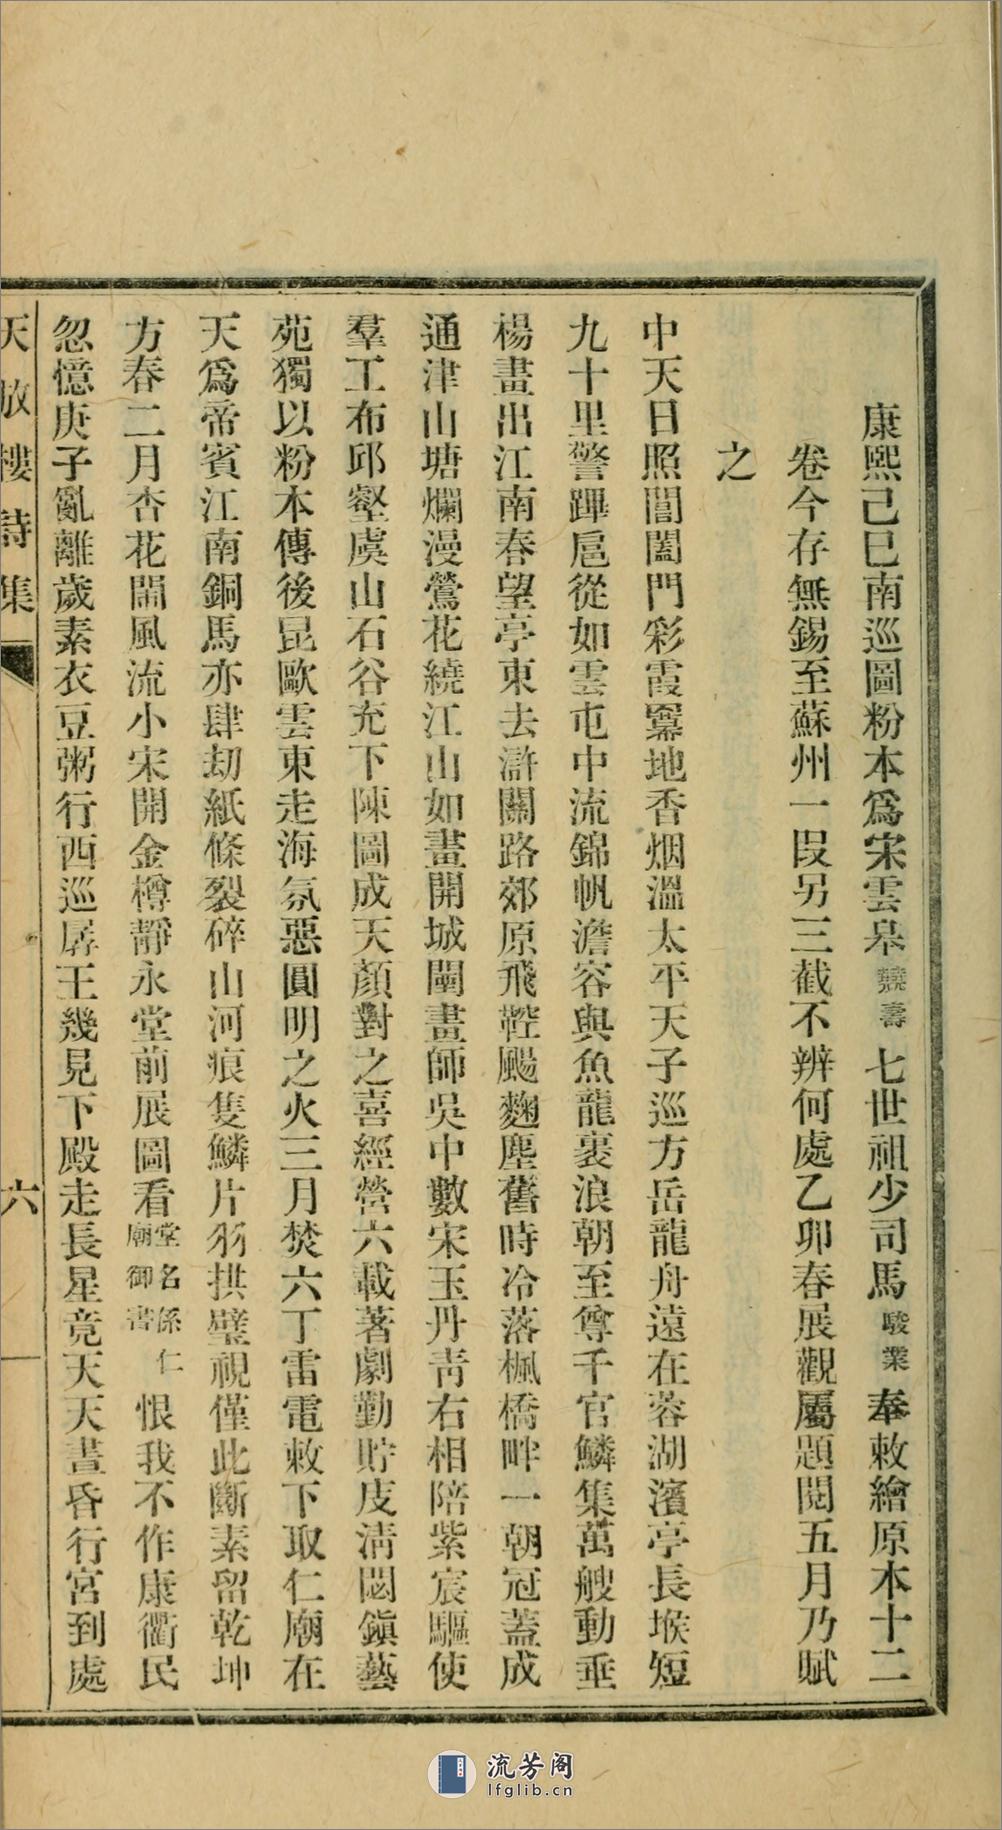 康熙己巳南巡圖粉本爲宋雲皋 壽 七世祖少司馬駿業奉敕繪原本十二
卷今存無錫至蘇州一段另三截不辨何處乙卯春展觀屬題閱五月乃賦
之
中天日照閶闔門彩霞羃地香烟溫太平天子巡方岳龍舟遠在蓉湖濱亭長堠短
九十里警蹕扈從如雲屯中流錦帆澹容與魚龍裹浪朝至尊千官鱗集萬艘動垂
楊畫出江南春望亭東去滸關路郊原飛鞚颺麴塵舊時冷落楓橋畔一朝冠蓋成
通津山塘爛漫鶯花繞江山如畫開城闉畫師吳中數宋玉丹靑右相陪紫宸驅使
羣工布邱壑虞山石谷充下陳圖成天顏對之喜經營六載著劇勤貯庋淸閟鎭藝
苑獨以粉本傳後昆歐雲東走海氛惡圓明之火三月焚六丁雷電敕下取仁廟在
天爲帝賓江南銅馬亦肆劫紙條裂碎山河痕隻鱗片羽拱璧視僅此斷素留乾坤
方春二月杏花開風流小宋開金樽靜永堂前展圖看堂名係仁廟御書恨我不作康衢民
忽憶庚子亂離歲素衣豆粥行西巡孱王幾見下殿走長星竟天天晝昏行宮到處
天放樓詩集 六
流芳阁
lfglib.cn